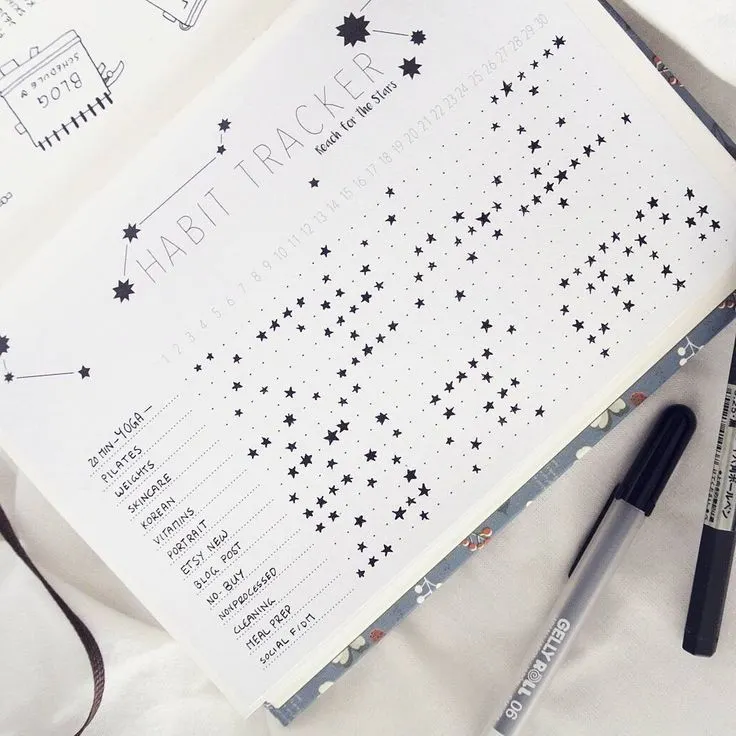 BLOG
SCHEDULE
HABIT TRACKER
Reach for the Stars
1 2 3 4 5 6 7 8 9 10 11 12 13 14 15 16 17 18 19 20 21 22 23 24 25 26 27 28 29 30
20 MIN - YOGA -
PILATES
WEIGHTS
SKINCARE
KOREAN
VITAMINS
PORTRAIT
ETSY NEW
BLOG POST
NO-BUY
NONPROCESSED
CLEANING
MEAL PREP
SOCIAL F/DM
GELLY ROLL 06